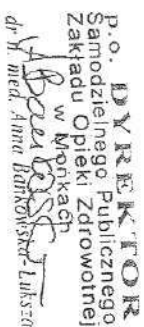 p.o. DYREKTOR
Samodzielnego Publicznego
Zakładu Opieki Zdrowotnej
w Mońkach
dr n. med. Anna Bańkowska-Łuksza